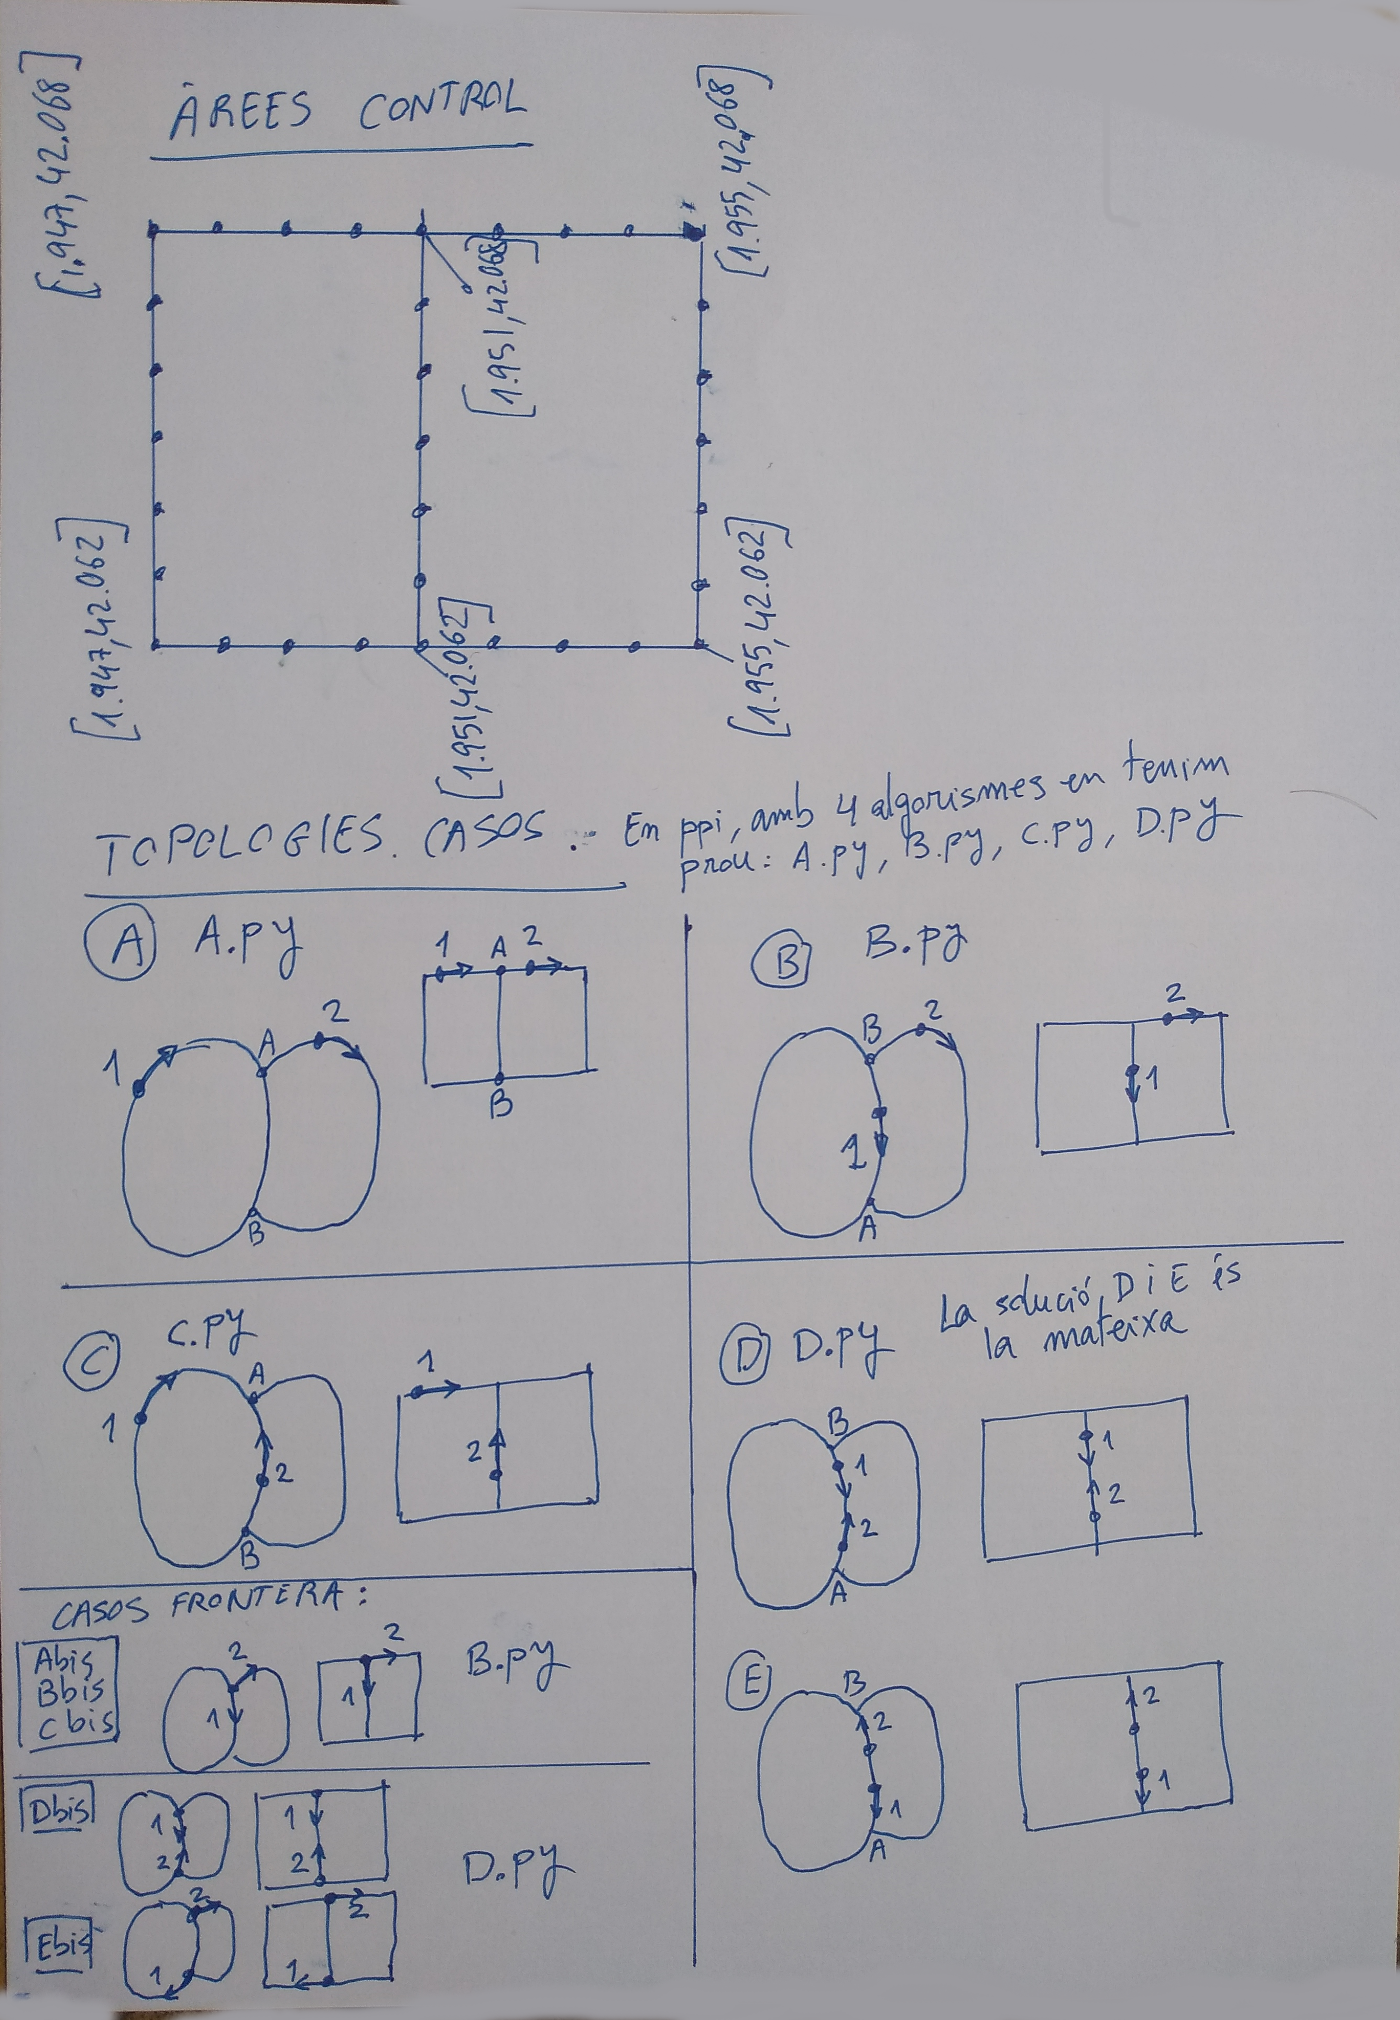 ÀREES CONTROL
[1.947, 42.068]
[1.955, 42.068]
[1.951, 42.068]
[1.947, 42.062]
[1.951, 42.062]
[1.955, 42.062]
TOPOLOGIES. CASOS.- En ppi, amb 4 algorismes en tenim
prou: A.py, B.py, C.py, D.py
A A.py
1 A 2
B
1 A 2
B
B B.py
B 2
1
A
2
1
C C.py
1 A
2
B
1
2
D D.py La solució, D i E és
la mateixa
B
1
2
A
1
2
CASOS FRONTERA:
Abis
Bbis
Cbis
2
1
2
1
B.py
E
B
2
1
A
2
1
Dbis
1
2
1
2
D.py
Ebis
2
1
2
1